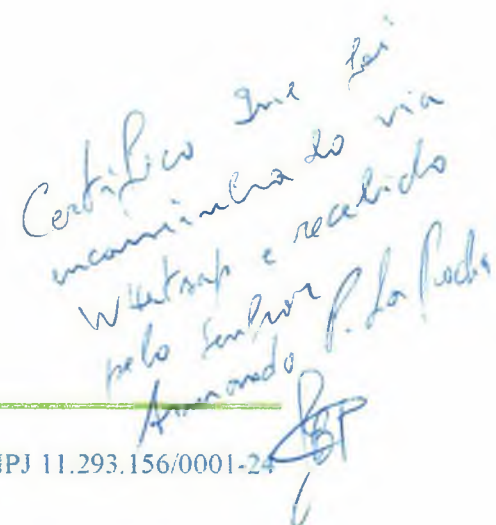 Certifico que foi
incaminhado via
Whatsap e recebido
pelo senhor
P. da Rocha
PJ 11.293.156/0001-24